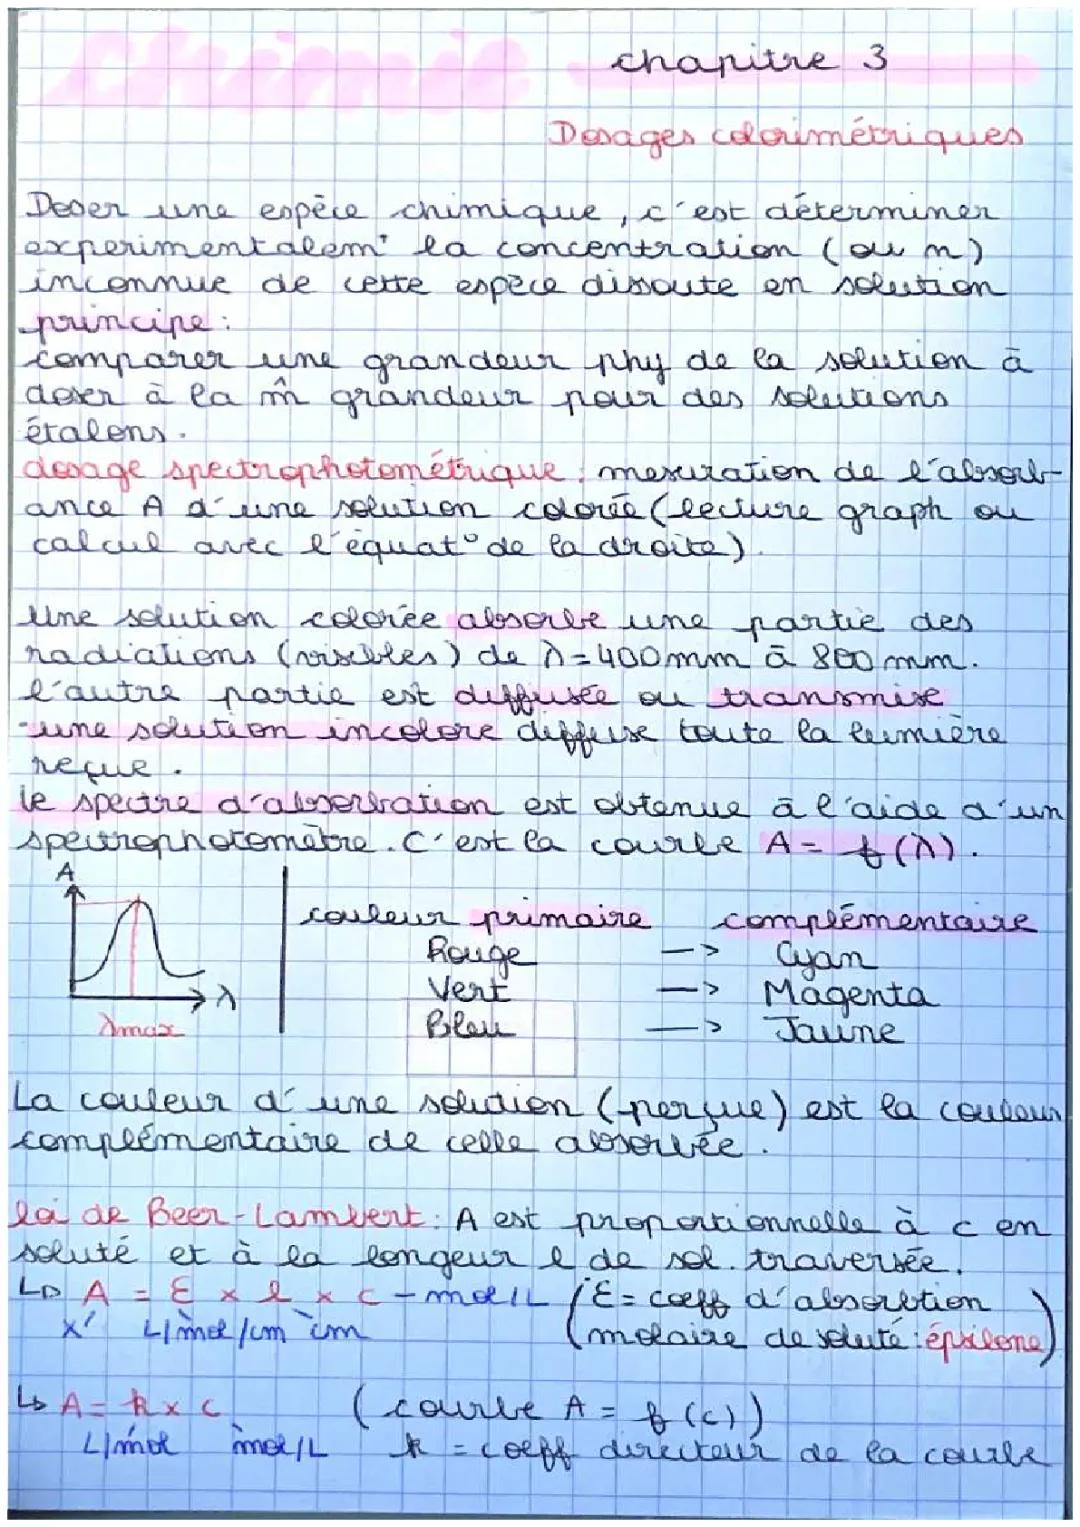 Chimie chapitre 3
Dosages colorimétriques
Doser une espèce chimique, c'est déterminer
experimentalemt la concentration (ou n)
inconnue de cette espèce dissoute en solution
principe :
comparer une grandeur phy de la solution à
doser à la m̂ grandeur pour des solutions
étalons.
dosage spectrophotométrique : mesuration de l'absorb-
ance A d'une solution colorée (lecture graph ou
calcul avec l'équat° de la droite).
Une solution colorée absorbe une partie des
radiations (visibles) de λ=400nm à 800nm.
l'autre partie est diffusée ou transmise
-une solution incolore diffuse toute la lumière
reçue.
le spectre d'absorbation est obtenue à l'aide d'un
spectrophotomètre. C'est la courbe A = f(λ).
A
λ
λmax
couleur primaire complémentaire
Rouge --> Cyan
Vert --> Magenta
Bleu --> Jaune
La couleur d'une solution (perçue) est la couleur
complémentaire de celle absorbée.
loi de Beer-Lambert : A est proportionnelle à c en
soluté et à la longeur l de sol. traversée.
↳ A = ε x l x c - mol/L (ε = coeff d'absorbtion
X L/mol/cm cm molaire de soluté : épsilone)
↳ A = k x c (courbe A = f(c))
L/mol mol/L k = coeff directeur de la courbe